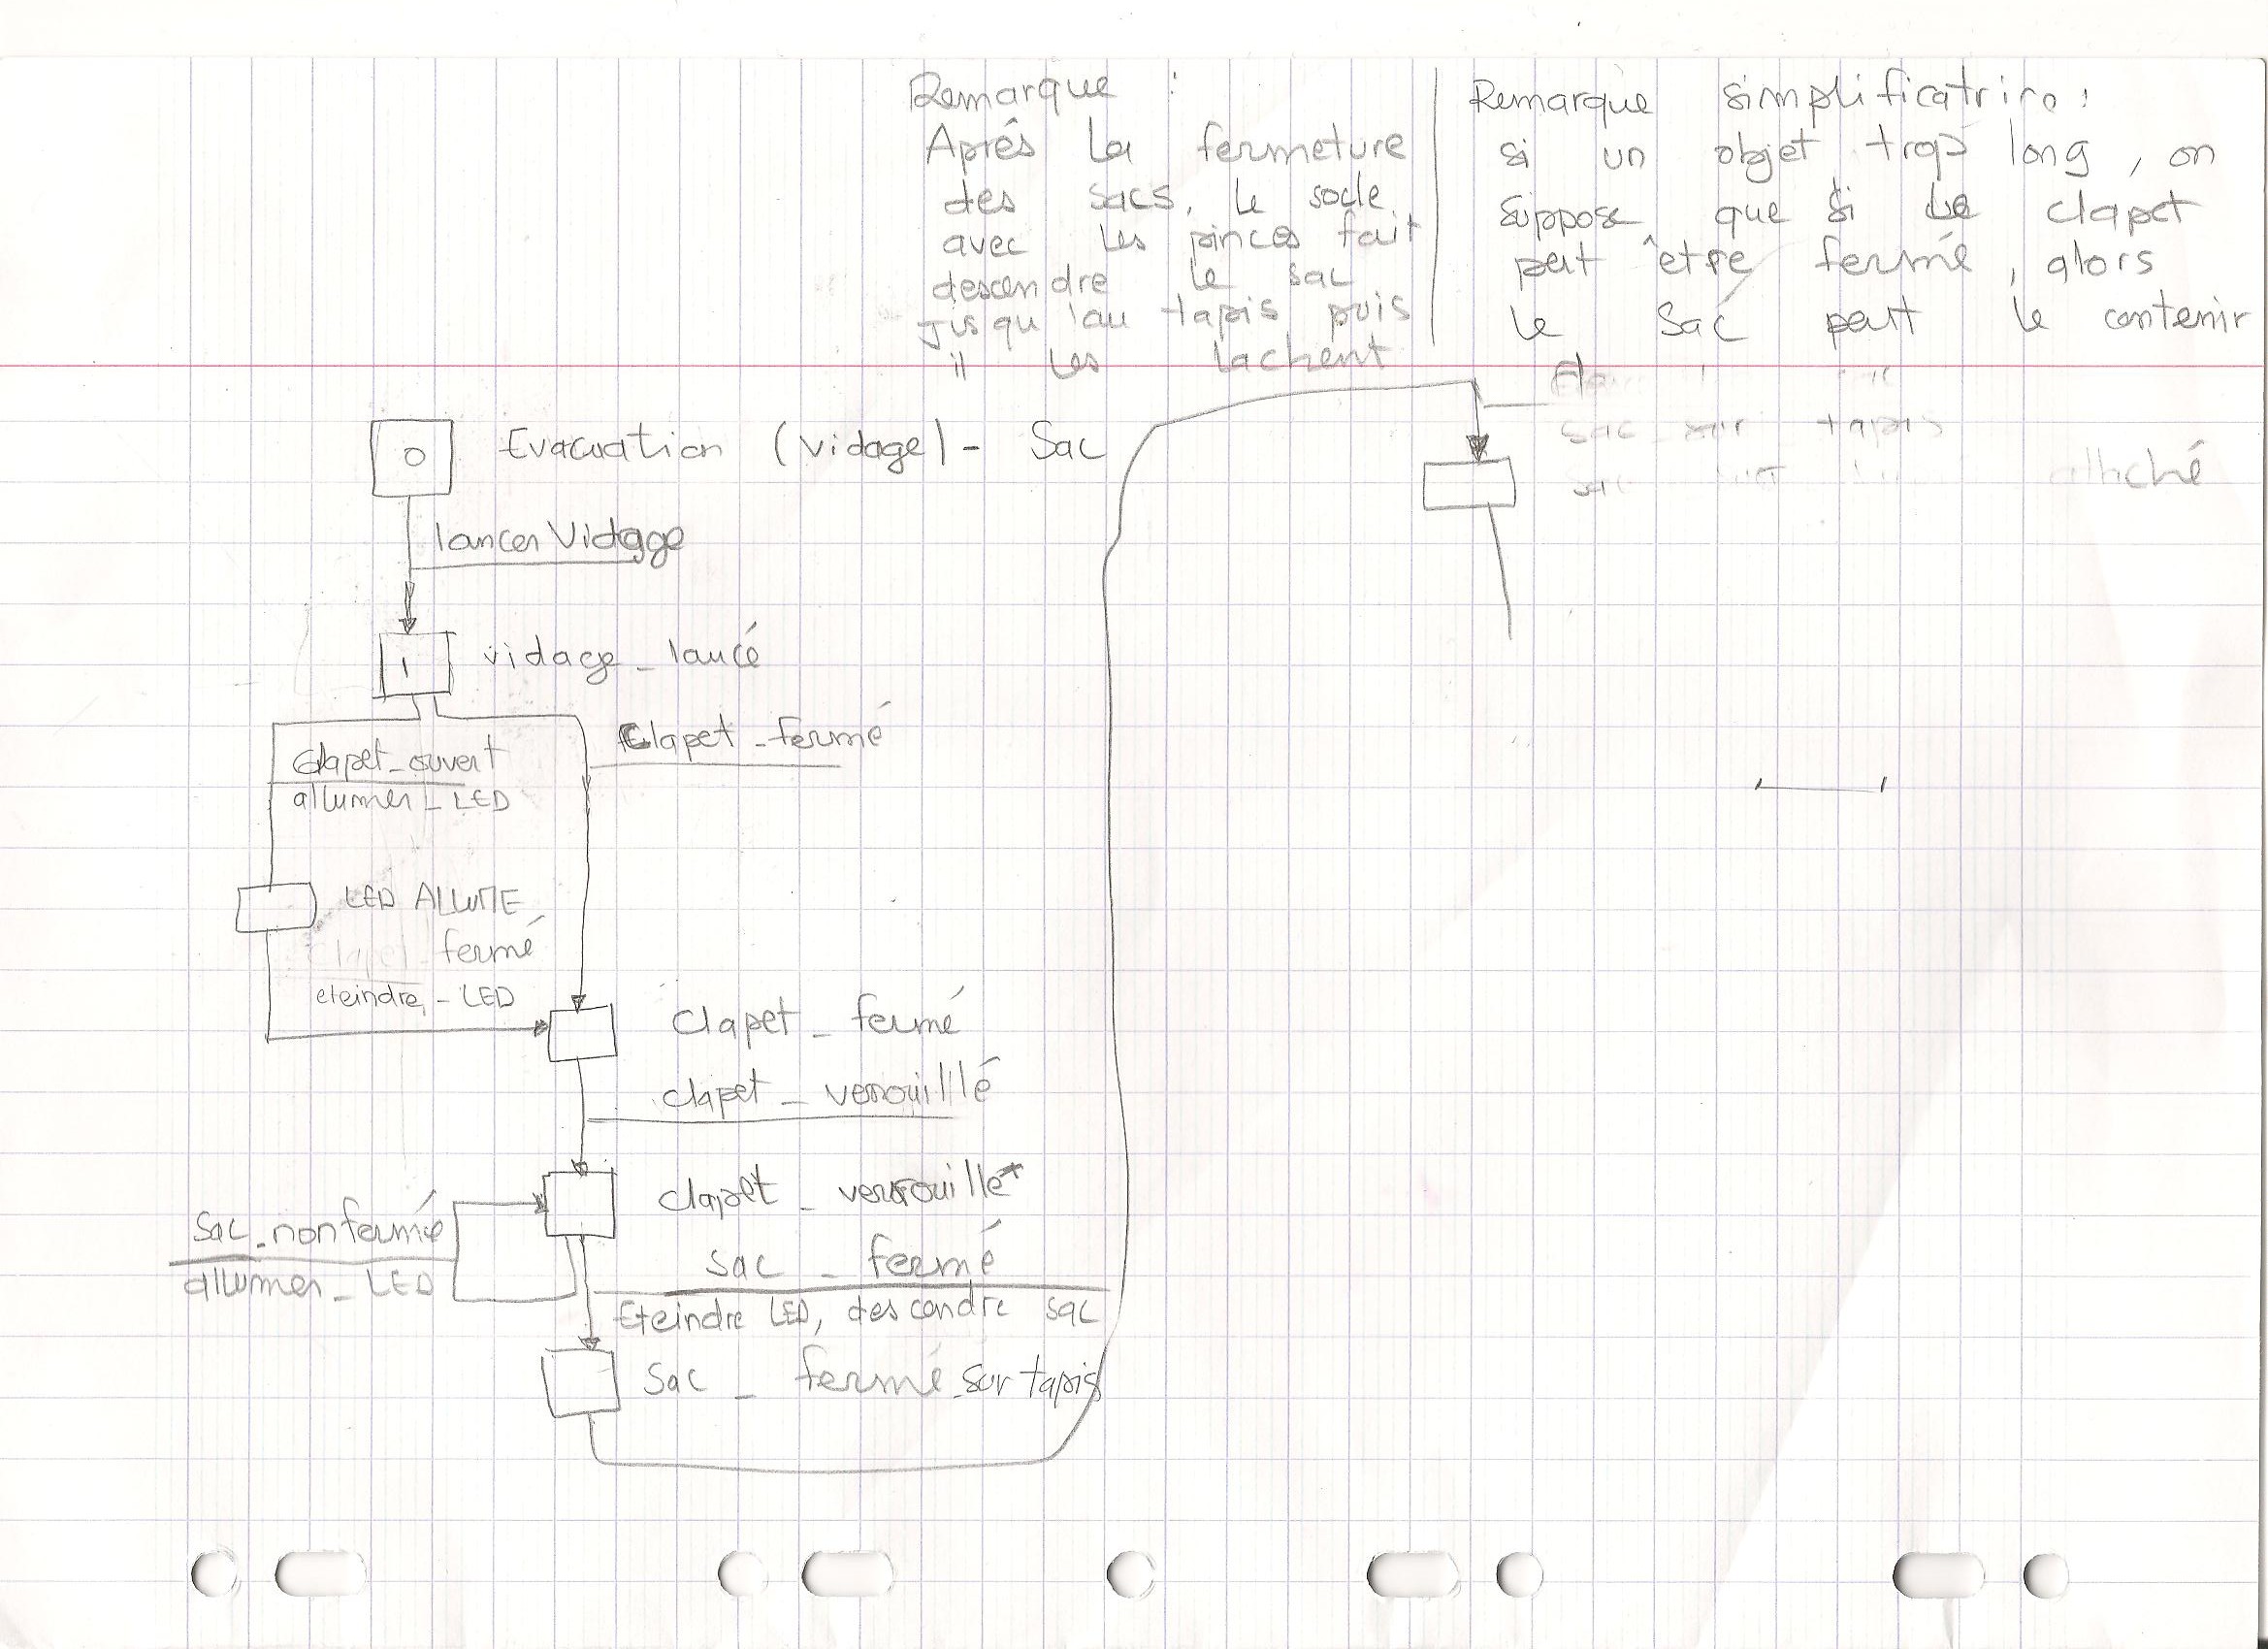 Remarque :
Après la fermeture
des sacs, le socle
avec les pinces fait
descendre le sac
jusqu'au tapis puis
il les lachent
Remarque simplificatrice :
si un objet trop long, on
suppose que si le clapet
peut être fermé, alors
le sac peut le contenir
sac sur tapis
sac attaché
0 Evacuation (vidage) - Sac
lancer Vidage
1 vidage_lancé
Clapet_fermé
clapet_ouvert
allumer_LED
LED ALLUME
Clapet_fermé
eteindre_LED
Clapet_fermé
clapet_verouillé
clapet_verrouillé
Sac_nonfermé
allumer_LED
sac_fermé
Eteindre LED, descendre sac
Sac_fermé_sur tapis